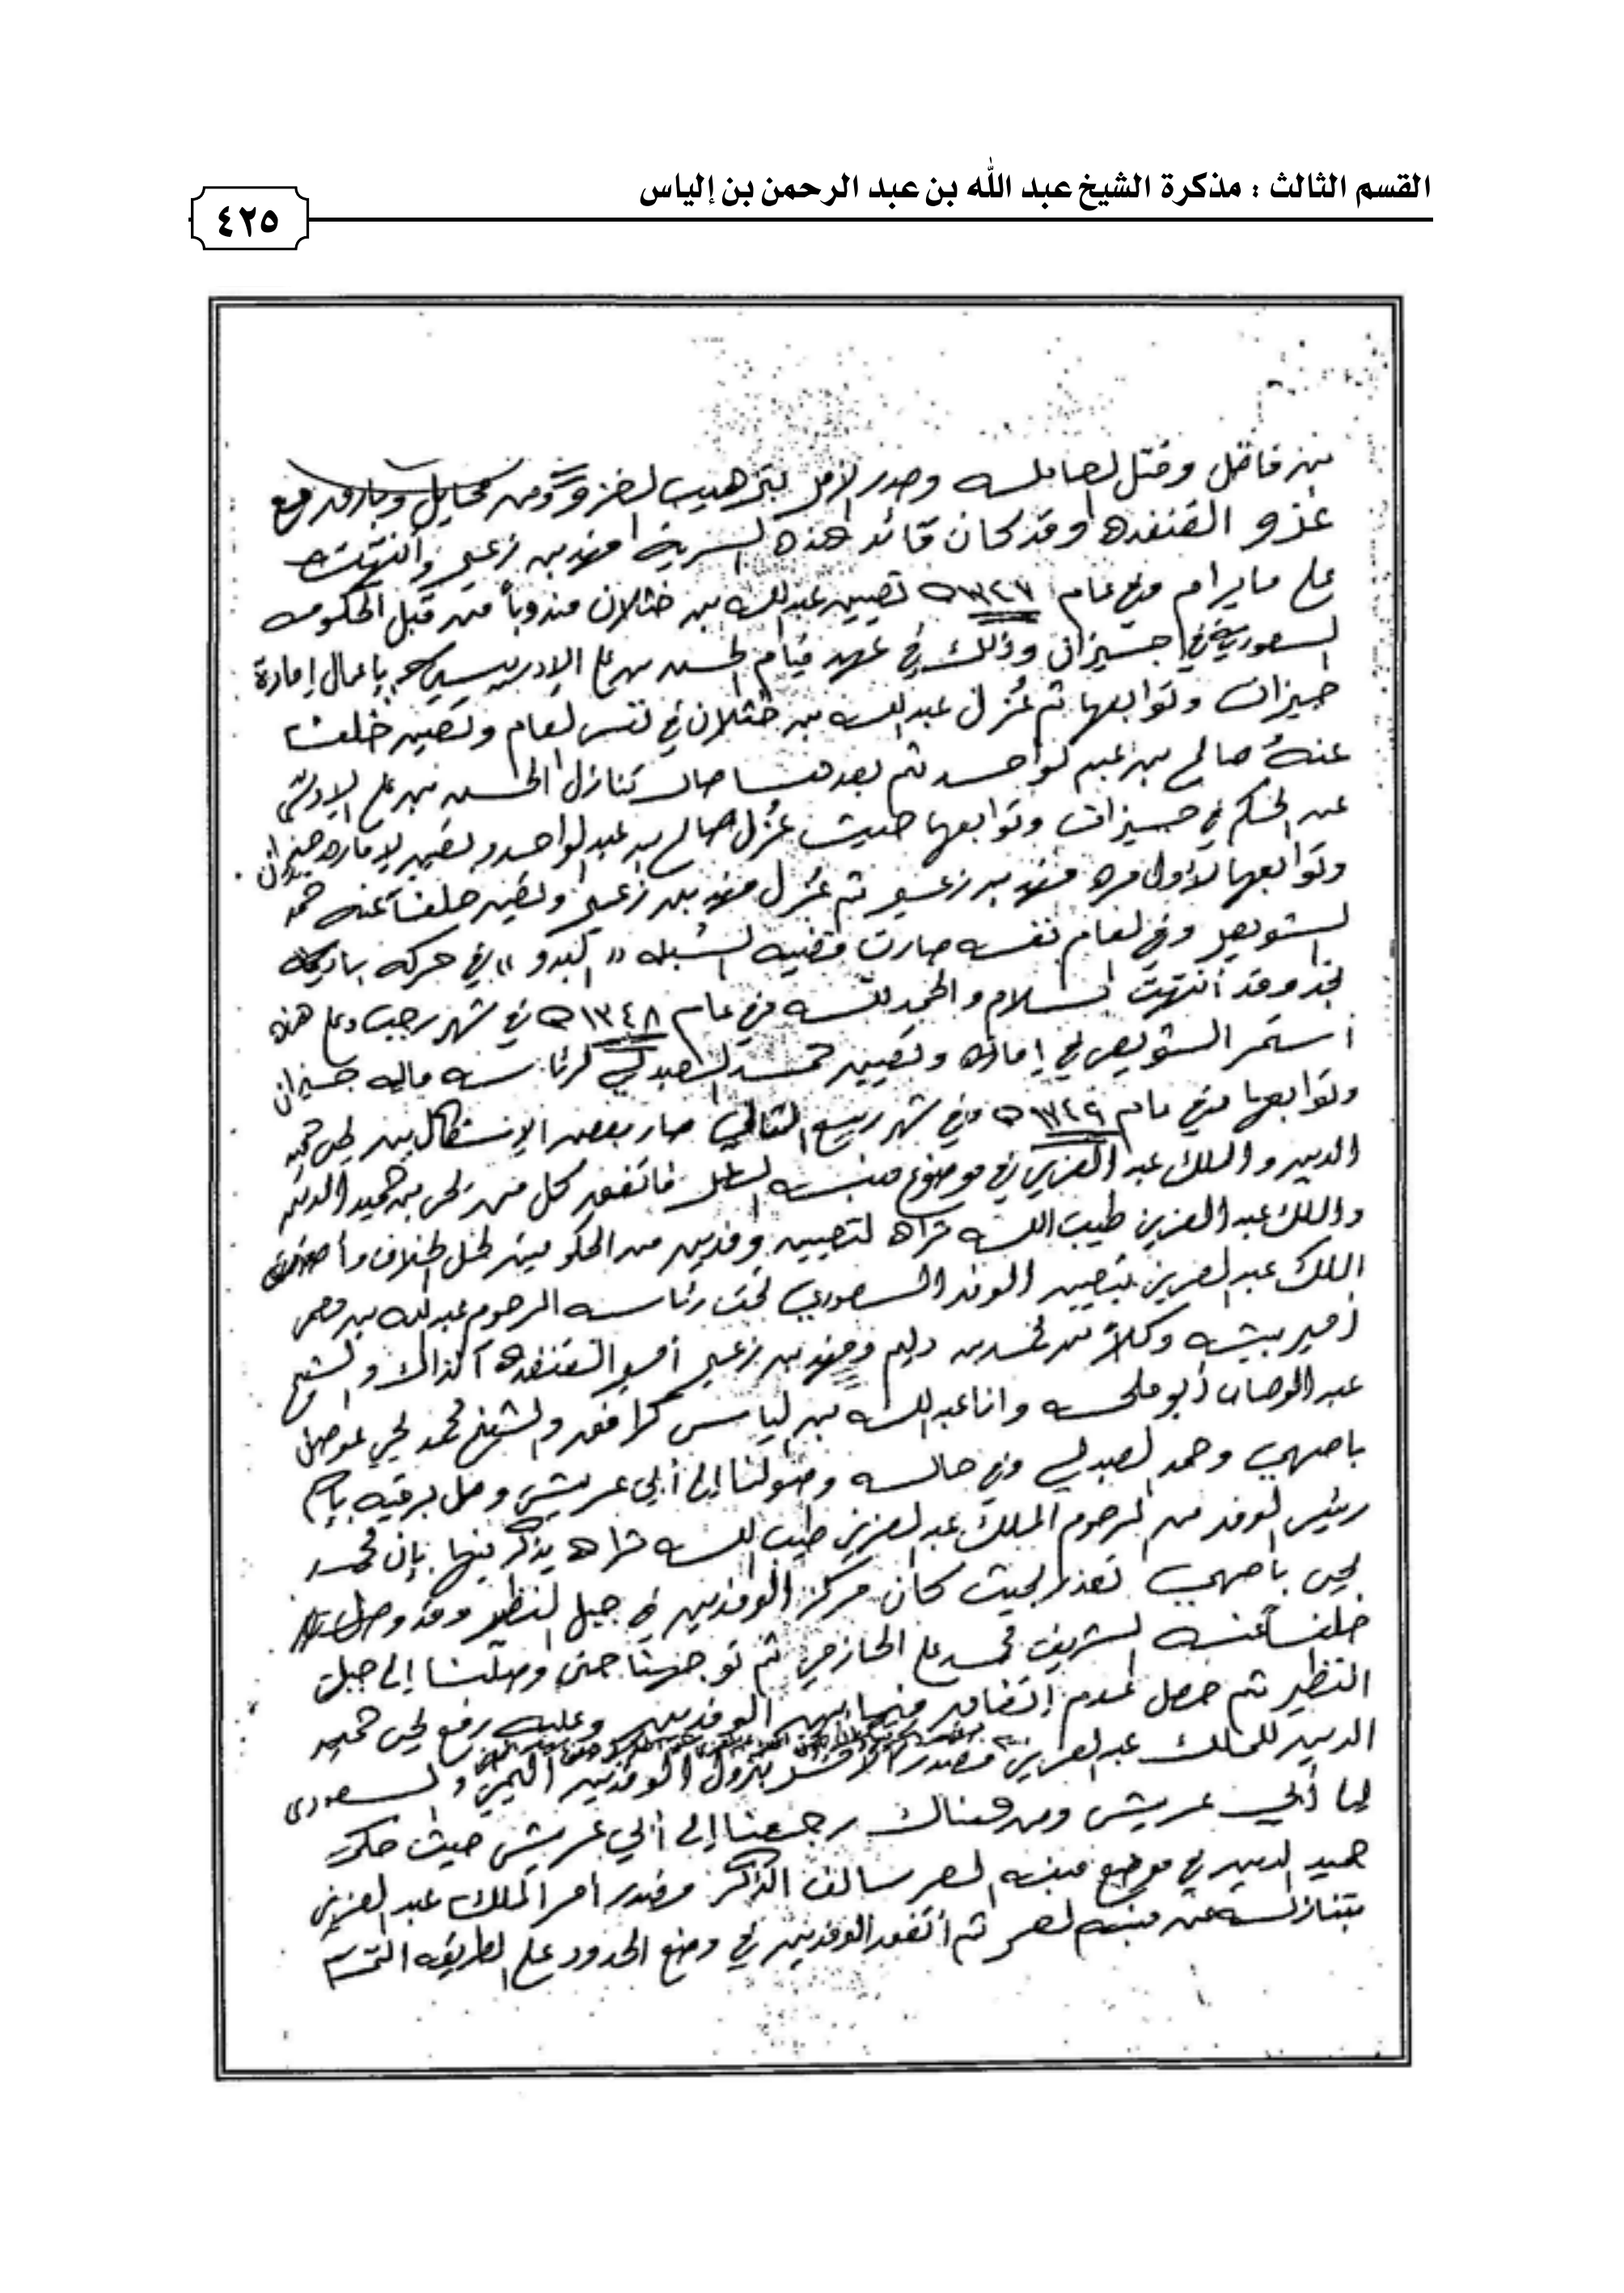 القسم الثالث : مذكرة الشيخ عبد الله بن عبد الرحمن بن إلياس
٤٢٥
بن فاضل وقتل لعامله وصدر الأمر بتزهيب الغزو ومن محايل وبارق مع
غزو القنفده وقد كان قائد هذه السرية فهد بن زعير وأنتهت
على ما يرام وفي عام ١٣٤٧ه تعيين عبدالله بن خثلان مندوباً من قبل الحكومه
السعودية في جيزان وذلك في عهد قيام الحسن بن علي الإدريسي بأعمال إمارة
جيزان وتوابعها ثم عُزل عبدالله بن خثلان في نفس العام وتعين خلفا
عنهُ صالح بن عبدالواحد ثم بعدها صار تنازل الحسن بن علي الإدريسي
عن الحكم في جيزان وتوابعها حيث عُزل صالح بن عبدالواحد وتعين لإماره جيزان
وتوابعها لأول مره فهد بن زعير ثم عُزل فهد بن زعير وتعين خلفاً عنه حمد
الشويعر وفي العام نفسه صارت قضيه السبله « البدو » في حركه باديه
نجد وقد أنتهت السلام والحمد لله وفي عام ١٣٤٨ه في شهر رجب وعلى هذه
أستمر الشويعر في إمارته وتعيين حمد العبدلي لرئاسه ماليه جيزان
وتوابعها وفي عام ١٣٤٩ه وفي شهر ربيع الثاني صار بعض الإشكال بين يحي حميد
الدين والملك عبد العزيز في موضوع منبه فاتفق كل من يحي بن حميد الدين
والملك عبد العزيز طيب الله ثراه لتعيين وفدين من الحكومتين لحل الخلاف
الملك عبد العزيز بتعيين الوفد السعودي تحت رئاسه المرحوم عبدالله بن معمر
أمير بيشه وكلاً من محمد بن دليم وفهد بن زعير أمير القنفده آنذاك والشيخ
عبد الوهاب أبو ملحه وانا عبدالله بن إلياس كرافق والشيخ محمد يحي عوض
باصهي وحمد العبدلي وفي حاله وصولنا إلى أبي عريش وصل برقيه بإسم
رئيس الوفد من المرحوم الملك عبدالعزيز طيب الله ثراه يذكر فيها بإن محمد
يحي باصهي تعذر بحيث كان مركز الوفدين في جبل النظير وقد وصل
خلفاً عنه الشريف محمد علي الحازمي ثم توجهنا حتى وصلنا إلى جبل
النظير ثم حصل عدم إتفاق فيما بين الوفدين وعليه رفع يحي حميد
الدين للملك عبدالعزيز فصدر بنزول الوفدين اليمني والسعودي
أبي عريش ومن هناك رجعنا إلى أبي عريش حيث
حميد الدين في موضع منبه سالف الذكر فصدر أمر الملك عبدالعزيز
بتنازله عن منبه ثم أتفق الوفدين في وضع الحدود على الطريقه